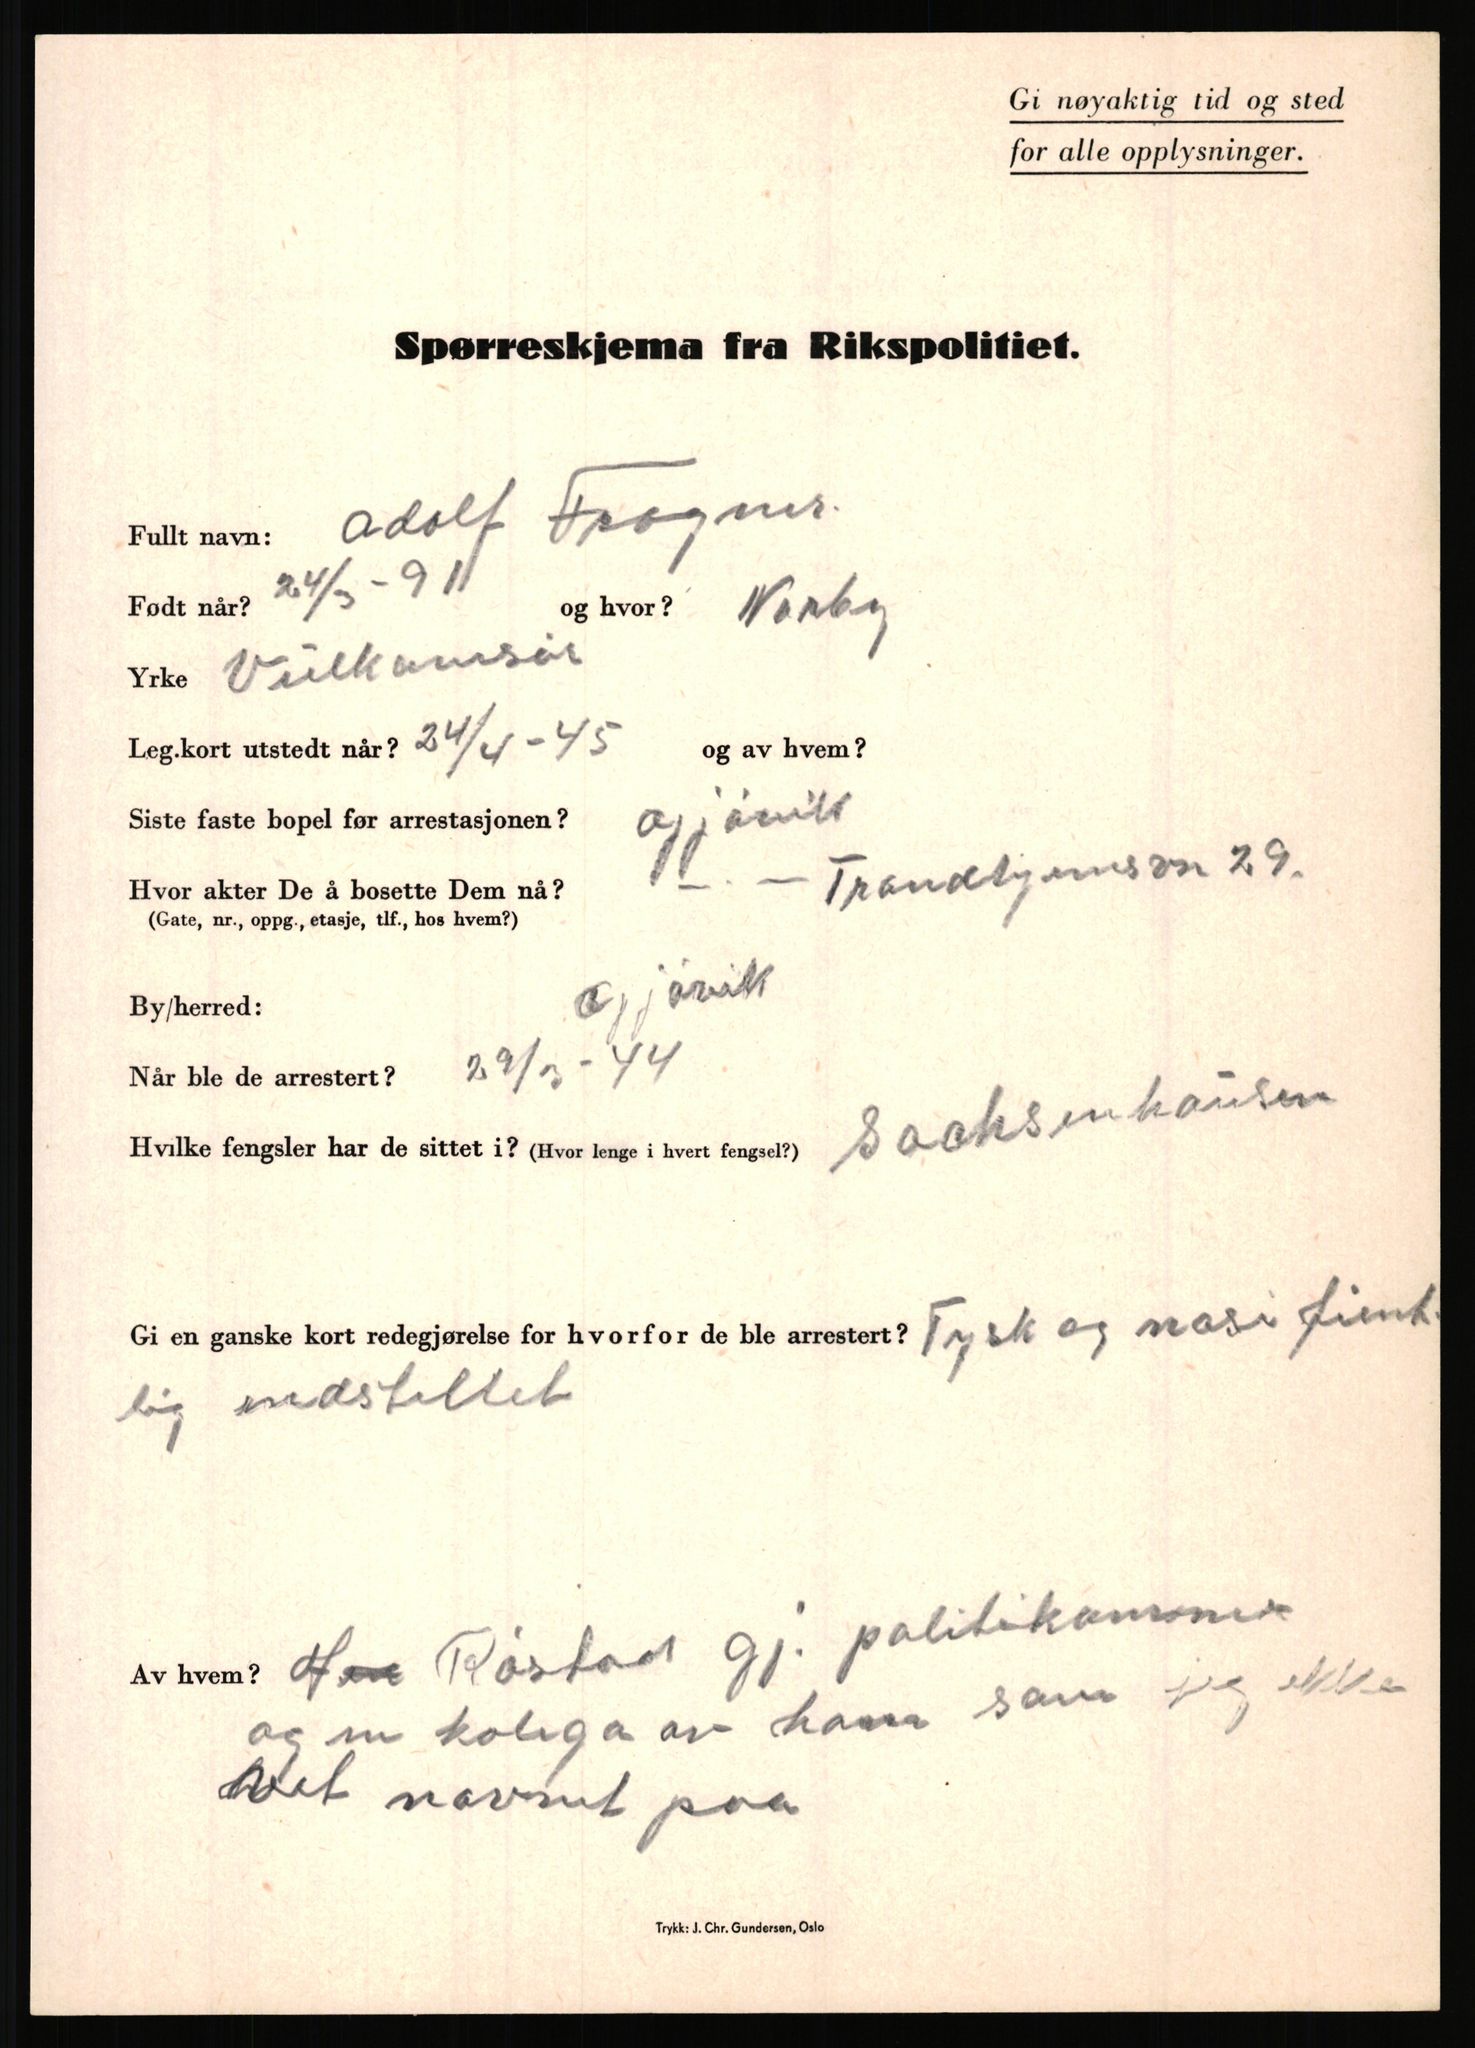 Gi nøyaktig tid og sted
for alle opplysninger.
Spørreskjema fra Rikspolitiet.
Fullt navn: Adolf Frogner.
Født når? 24/3-91 og hvor? Norby
Yrke Vülkanisör
Leg.kort utstedt når? 24/4-45 og av hvem?
Siste faste bopel før arrestasjonen? Gjövik
Hvor akter De å bosette Dem nå? — . — Trondhjemsvn 29.
(Gate, nr., oppg., etasje, tlf., hos hvem?)
By/herred: Gjövik
Når ble de arrestert? 29/3-44
Hvilke fengsler har de sittet i? (Hvor lenge i hvert fengsel?) Sachsenhaüsen
Gi en ganske kort redegjørelse for hvorfor de ble arrestert? Tysk og nasi fient-
lig indstellet
Av hvem? Röstad gj. politikammer
og en kolega av ham som jeg ikke
vet navnet paa
Trykk: J. Chr. Gundersen, Oslo